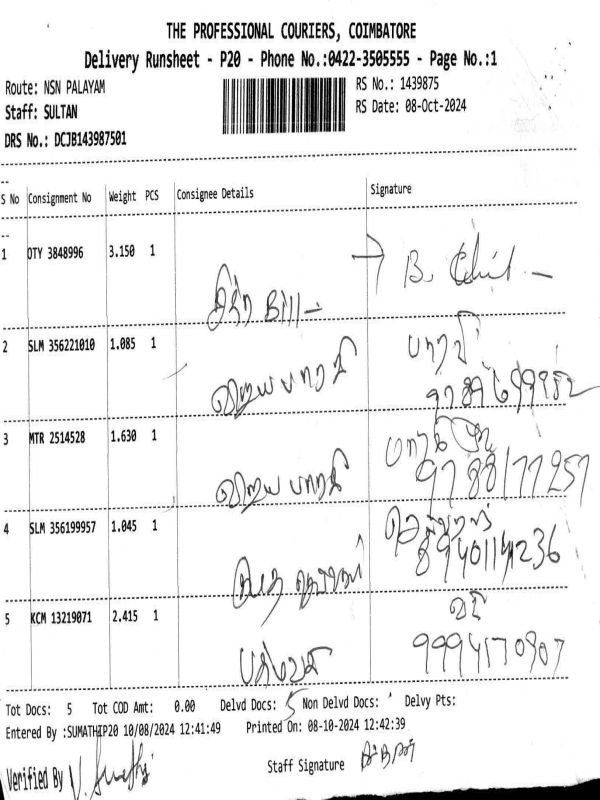 THE PROFESSIONAL COURIERS, COIMBATORE
Delivery Runsheet - P20 - Phone No.:0422-3505555 - Page No.:1
Route: NSN PALAYAM RS No.: 1439875
Staff: SULTAN RS Date: 08-Oct-2024
DRS No.: DCJB143987501
S No Consignment No Weight PCS Consignee Details Signature
1 OTY 3848996 3.150 1 B.
சித்ரா Bill
2 SLM 356221010 1.085 1 பாரதி
விஜய பாரதி
3 MTR 2514528 1.630 1
விஜய பாரதி 9788177257
4 SLM 356199957 1.045 1
8940114236
5 KCM 13219071 2.415 1
9994170907
Tot Docs: 5 Tot COD Amt: 0.00 Delvd Docs: 5 Non Delvd Docs: Delvy Pts:
Entered By :SUMATHIP20 10/08/2024 12:41:49 Printed On: 08-10-2024 12:42:39
Verified By V. Sumathi Staff Signature